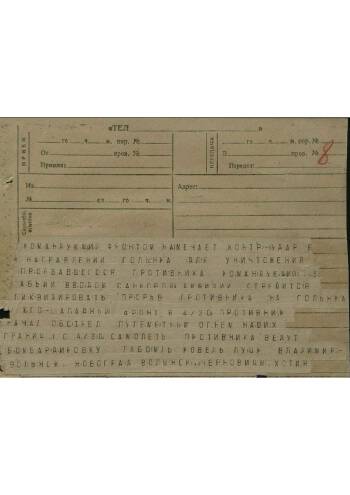 «ТЕЛ
ПРИЕМ
го ч. м. пор. №
От пров. №
Принял:
ПЕРЕДАЧА
го ч. м. пор. №
В пров. №
Передал:
8
Из
№ сл. го ч. м.
Адрес:
Служебн. отметки
КОМАНДУЮЩИЙ ФРОНТОМ НАМЕЧАЕТ КОНТР-УДАР В
НАПРАВЛЕНИИ ГОЛЫНКА ДЛЯ УНИЧТОЖЕНИЯ
ПРОРВАВШЕГОСЯ ПРОТИВНИКА КОМАНДУЮЩИЙ
ВВОДОМ СТРЕМИТСЯ
ЛИКВИДИРОВАТЬ ПРОРЫВ ПРОТИВНИКА НА ГОЛЫНКА
ЮГО-ЗАПАДНЫЙ ФРОНТ В 4/30 ПРОТИВНИК
НАЧАЛ ОБСТРЕЛ ПУЛЕМЕТНЫМ ОГНЕМ НАШИХ
ГРАНИЦ С 4/30 САМОЛЕТЫ ПРОТИВНИКА ВЕДУТ
БОМБАРДИРОВКУ ЛЮБОМЛЬ КОВЕЛЬ ЛУЦК ВЛАДИМИР-
ВОЛЫНСК НОВОГРАД ВОЛЫНСК ЧЕРНОВИЦЫ ХОТИН